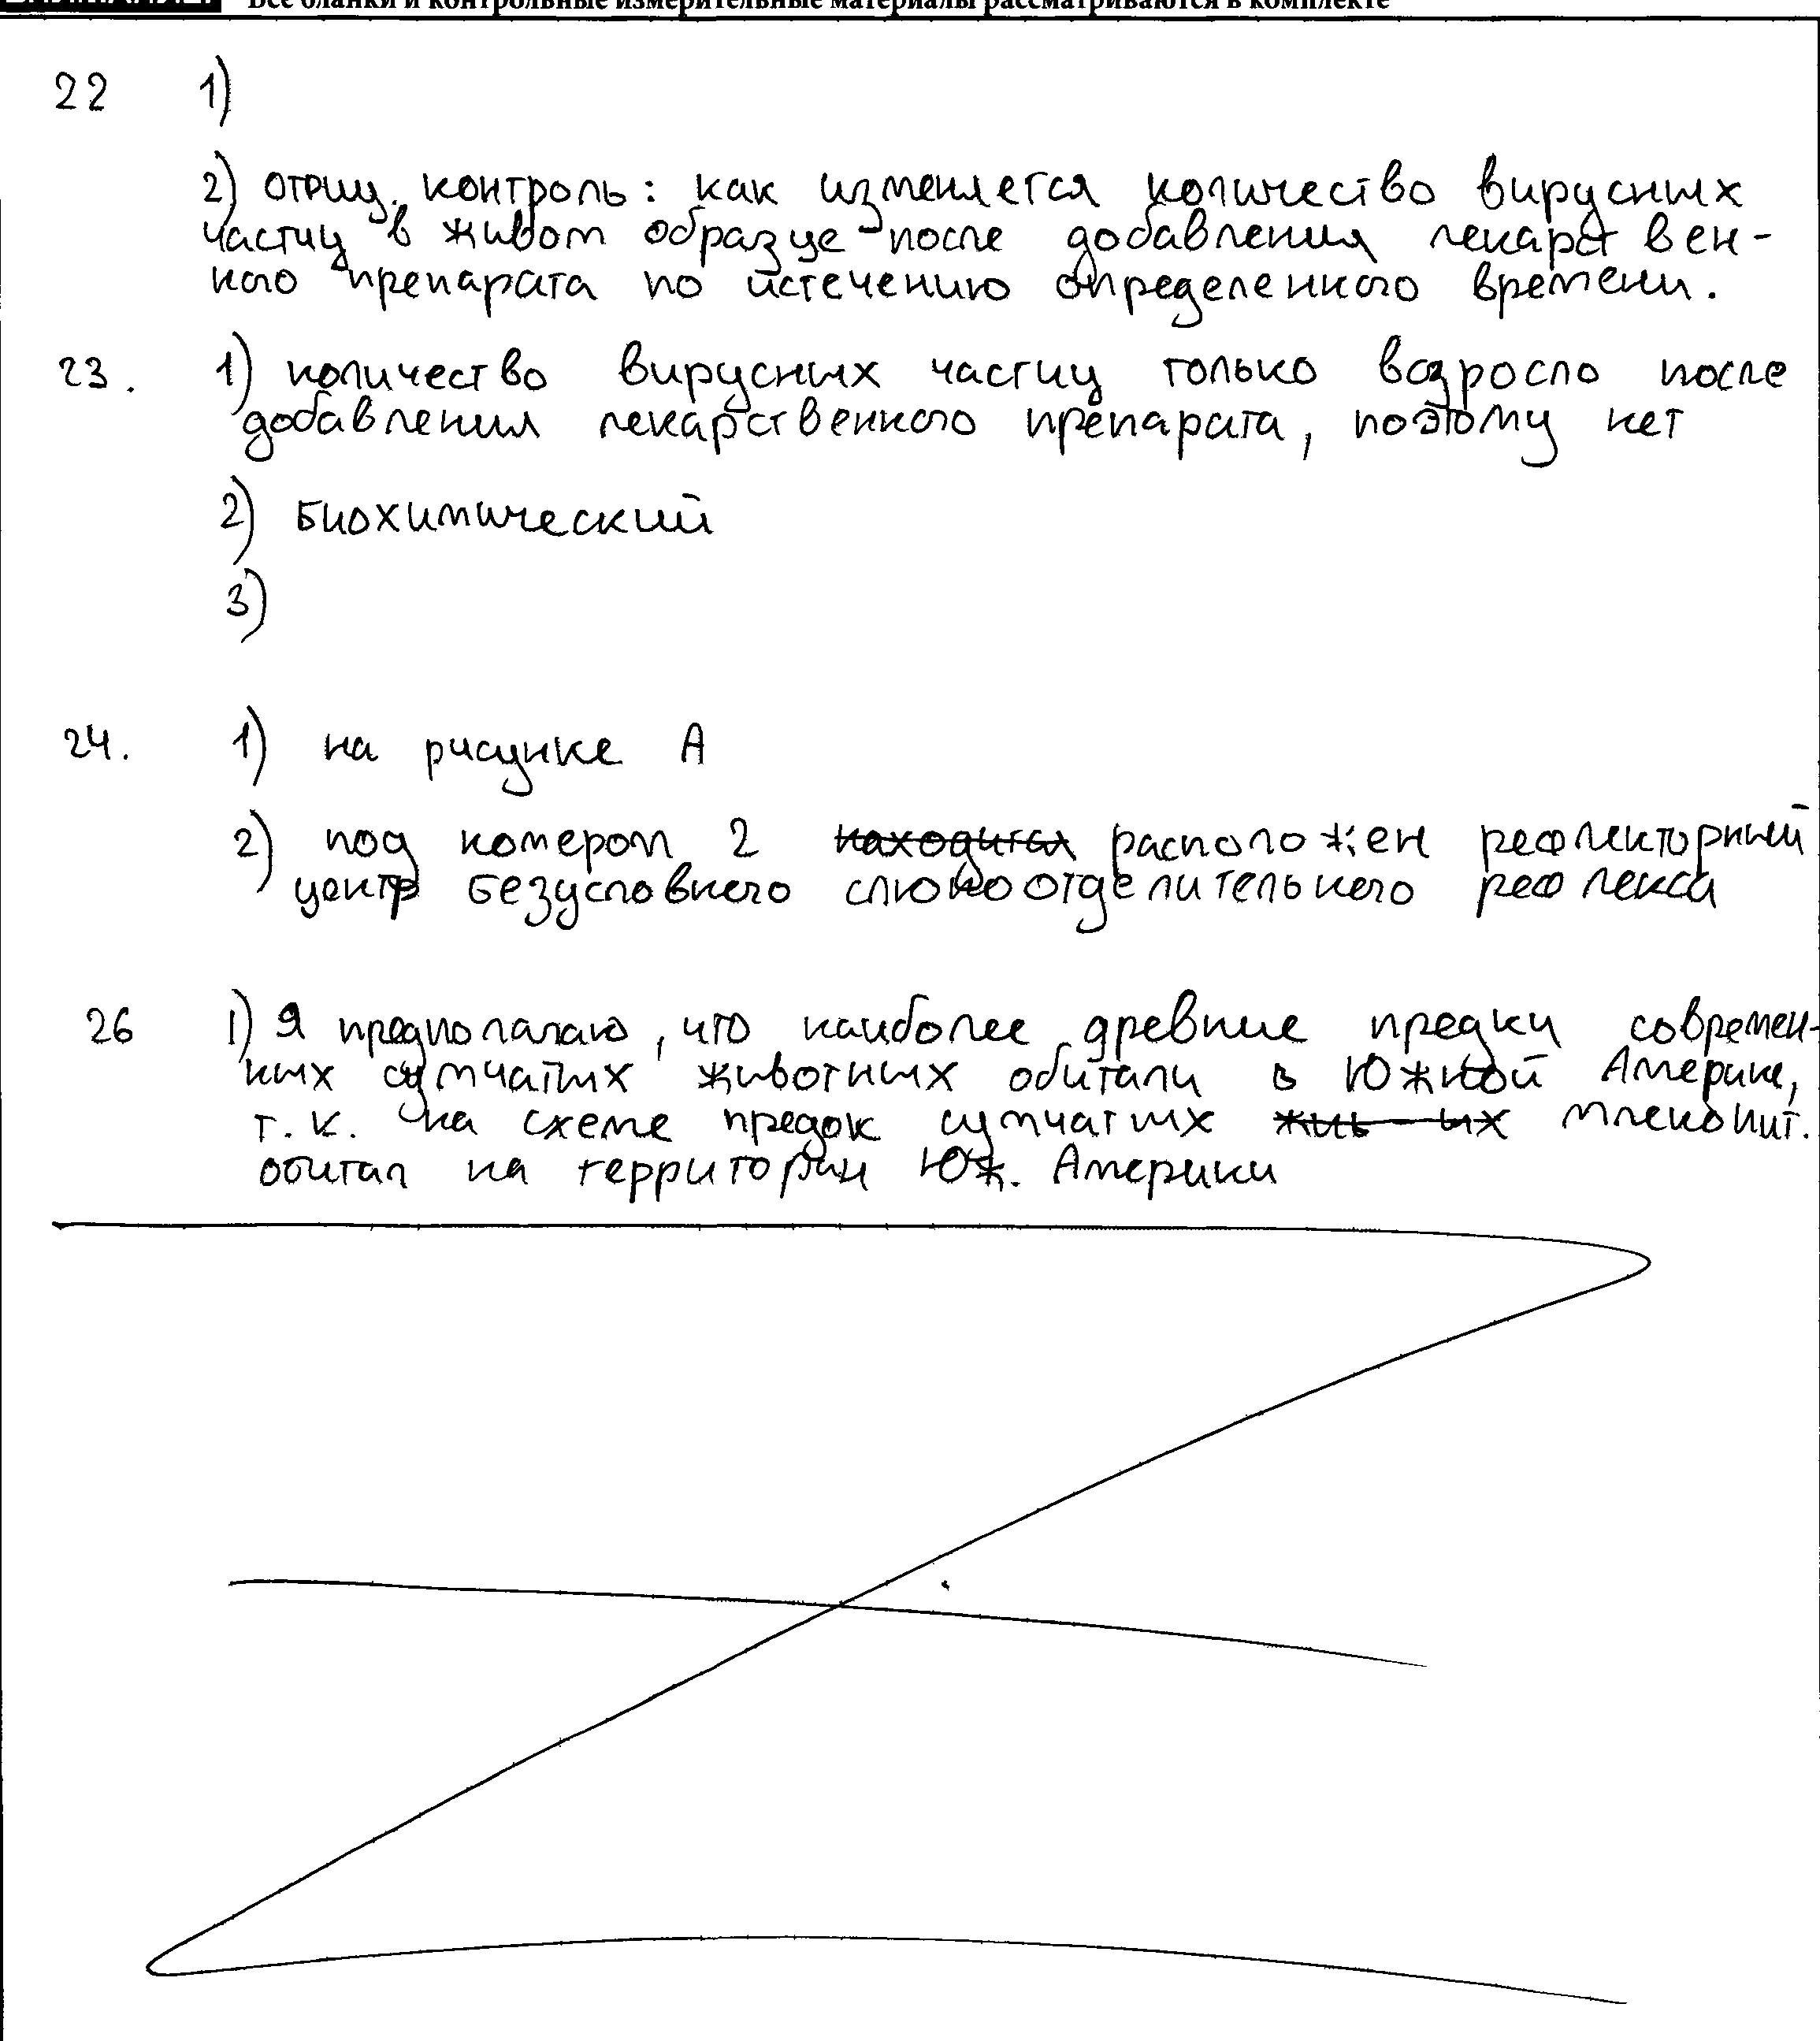 Все бланки и контрольные измерительные материалы рассматриваются в комплекте
22 1)
2) отриц. контроль: как изменяется количество вирусных
частиц в живом образце после добавления лекарствен-
ного препарата по истечению определенного времени.
23. 1) количество вирусных частиц только возросло после
добавления лекарственного препарата, поэтому нет
2) Биохимический
3)
24. 1) на рисунке А
2) под номером 2 находится расположен рефлекторный
центр безусловного слюноотделительного рефлекса
26 1) Я предполагаю, что наиболее древние предки современ-
ных сумчатых животных обитали в Южной Америке,
т.к. на схеме предок сумчатых млекопит.
обитал на территории Юж. Америки